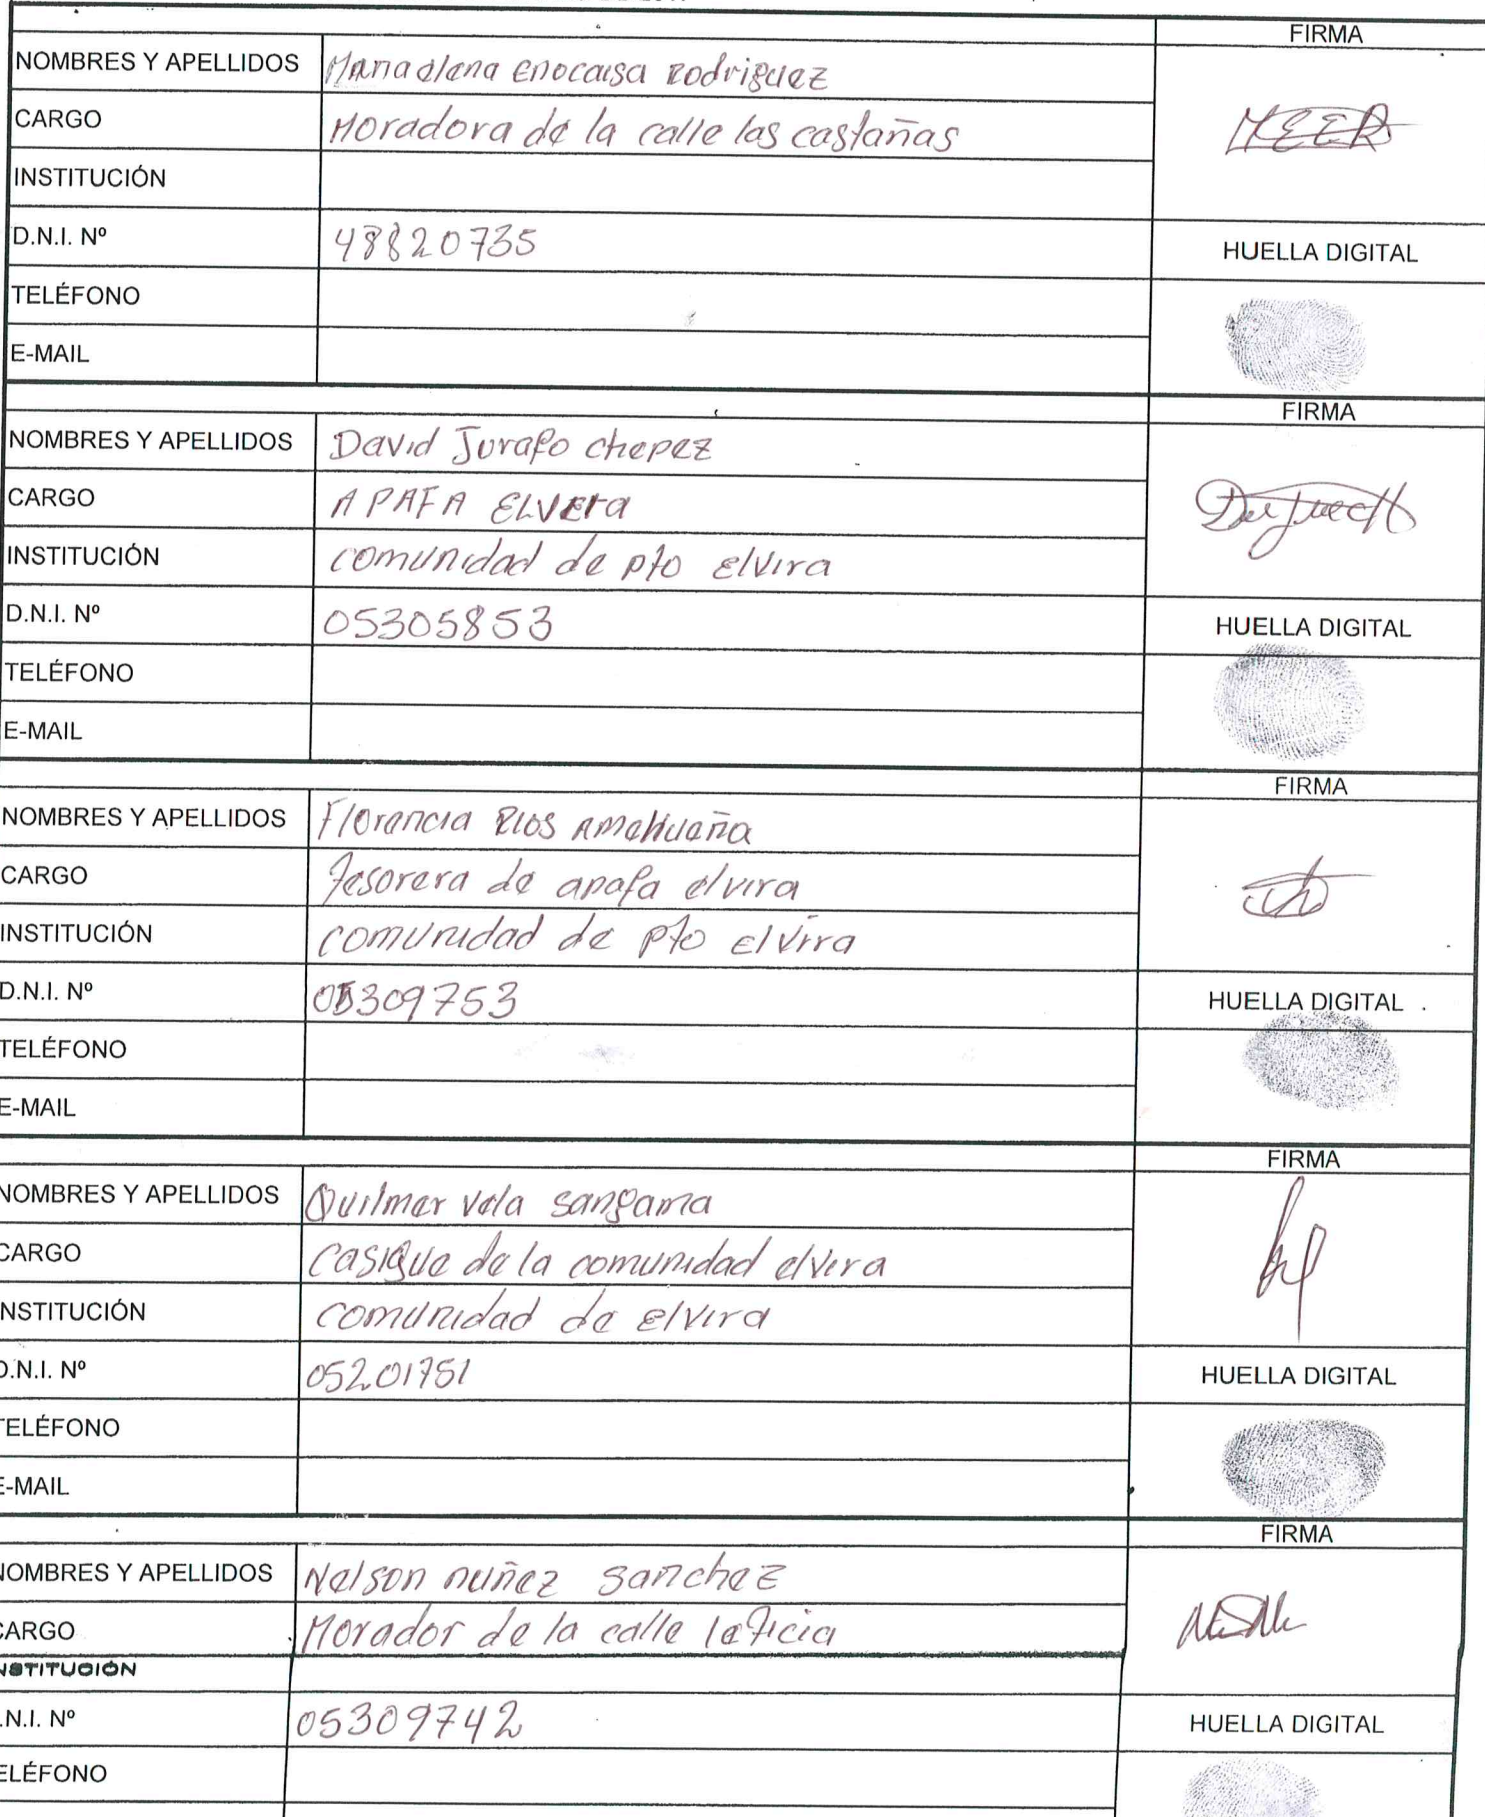 FIRMA
NOMBRES Y APELLIDOS Mariaelena enocaisa Rodriguez
CARGO Moradora de la calle las castañas
INSTITUCIÓN
D.N.I. Nº 48820735
HUELLA DIGITAL
TELÉFONO
E-MAIL
FIRMA
NOMBRES Y APELLIDOS David Jurapo chepez
CARGO APAFA ELVEra
INSTITUCIÓN comunidad de pto Elvira
D.N.I. Nº 05305853
HUELLA DIGITAL
TELÉFONO
E-MAIL
FIRMA
NOMBRES Y APELLIDOS Florencia RIOS AMahuaña
CARGO Tesorera de apafa elvira
INSTITUCIÓN comunidad de pto Elvira
D.N.I. Nº 05309753
HUELLA DIGITAL
TELÉFONO
E-MAIL
FIRMA
NOMBRES Y APELLIDOS Quilmer vela sangama
CARGO casique de la comunidad elvera
INSTITUCIÓN comunidad de Elvira
D.N.I. Nº 05201751
HUELLA DIGITAL
TELÉFONO
E-MAIL
FIRMA
NOMBRES Y APELLIDOS Nelson nuñez sanchez
CARGO Morador de la calle leticia
INSTITUCIÓN
D.N.I. Nº 05309742
HUELLA DIGITAL
TELÉFONO